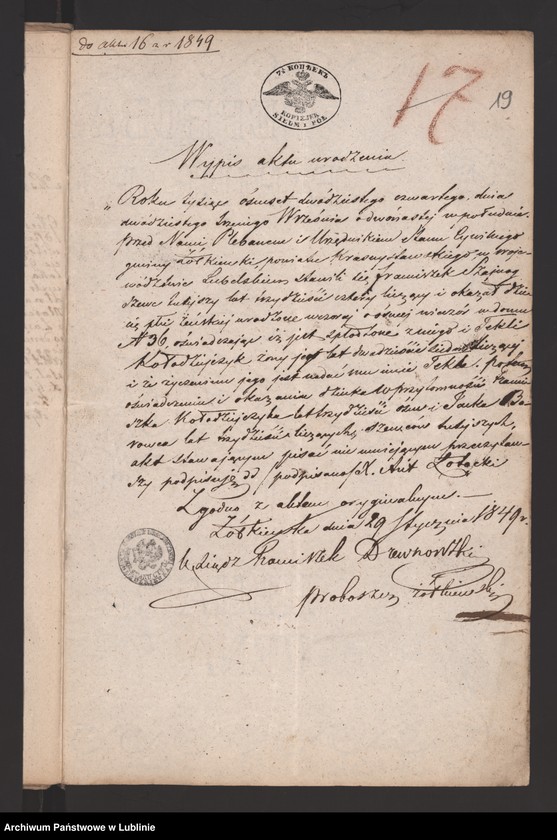 do aktu 16 z r 1849
17
19
7½ КОПѢЕКЪ
KOPIEJEK
SIEDM I PÓŁ
Wypis aktu urodzenia.
„Roku tysiąc ośmset dwódziestego czwartego, dnia
dwódziestego trzeciego Września o dwónastej w południe
przed Nami, Plebanem i Urzędnikiem Stanu Cywilnego
gminy Żółkiewski powiatu Krasnystawskiego w woje
wództwie Lubelskiem stawił się Franciszek Szajnog
szewc tutejszy lat trzydzieści cztery liczący i okazał dzie
cię płci żeńskiej urodzone wczoraj o ósmej wieczór w domu
N 36, oświadczając iż jest spłodzone z niego i Tekli
Kołodziejczyk żony jego lat dwadzieście siedm liczącej
i że życzeniem jego jest nadać mu imie Tekla. po tem
oświadczeniu i okazaniu dziecka w przytomności
Kołodziejczyka lat trzydzieści ośm i Jacka
lat trzydzieści liczących, szewców tutejszych,
akt stawającym pisać nie umiejącym przeczytaw-
szy podpisuję dd /podpisano/ X. Ant Zołocki
Zgodno z aktem oryginalnym.—
Żółkiewka dnia 29 Stycznia 1849 r.
Xiądz Franciszek Drewnowski
Proboszcz Żółkiewski
Archiwum Państwowe w Lublinie